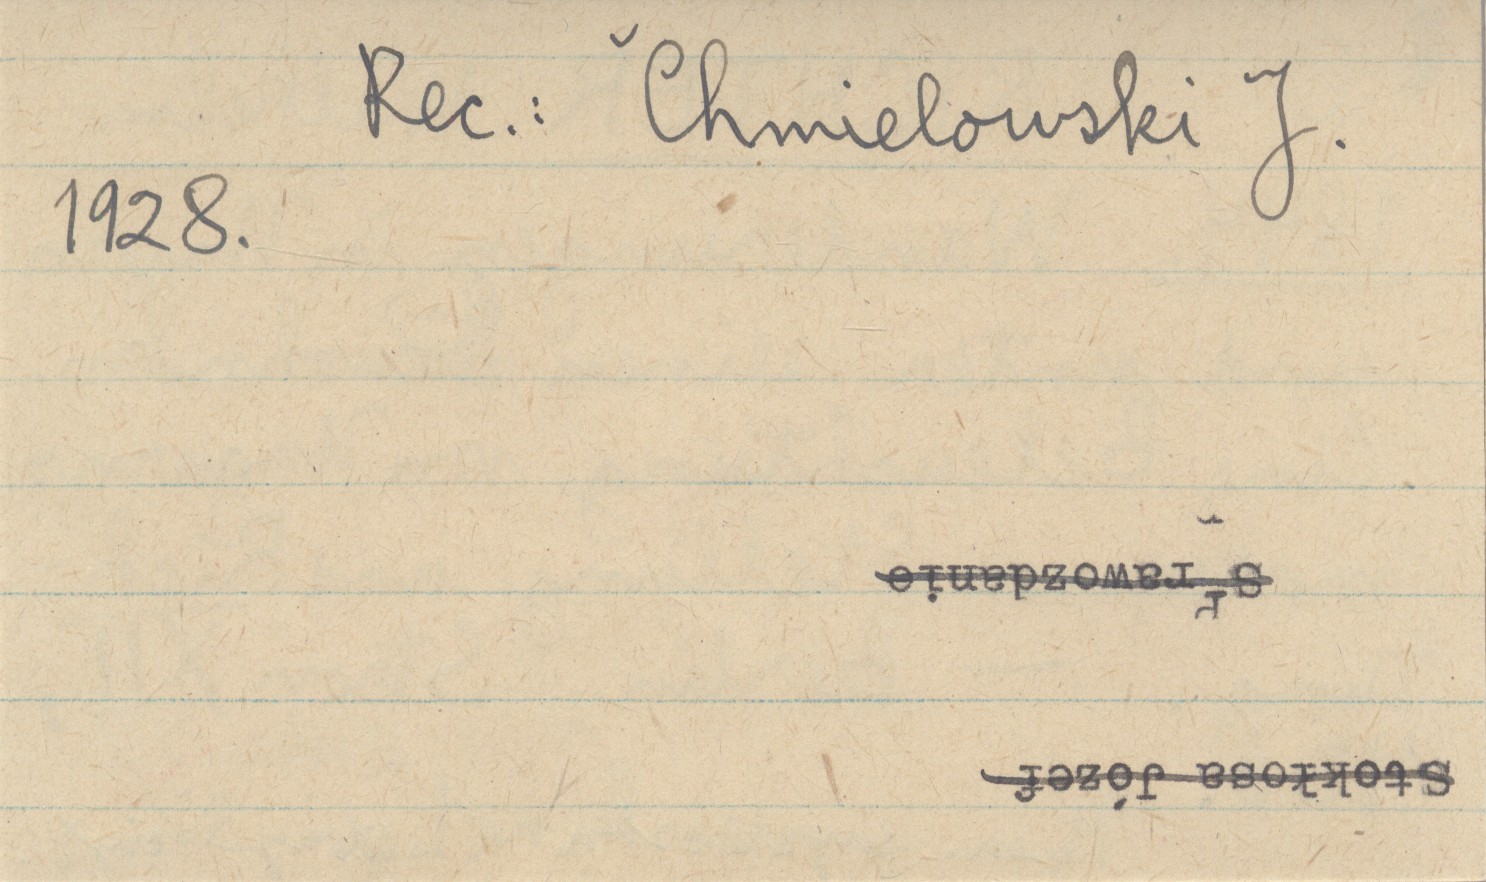 Rec.: Chmielowski J.
1928.
Stokłosa Józef
Sprawozdanie